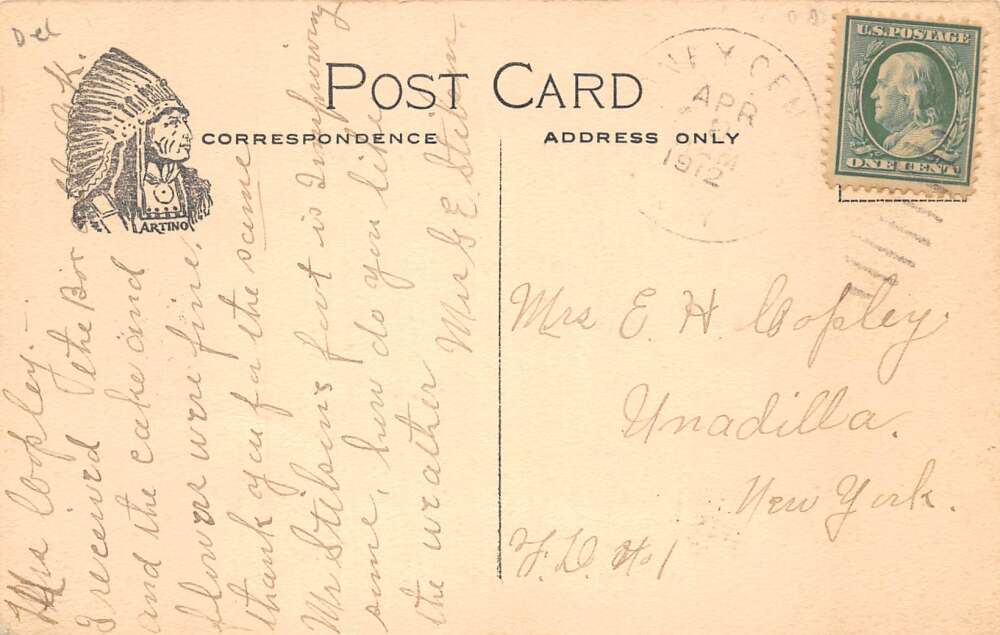 Del
POST CARD
CORRESPONDENCE
ADDRESS ONLY
ARTINO
U.S. POSTAGE
ONE CENT
APR
1912
Mrs Copley.
I received the Box
and the cake and
flowers were fine.
thank you for the same
Mr Stilsons foot is Improving
some, how do you like
the weather Mrs G E. Stilson.
Mrs E. H Copley.
Unadilla.
New York.
F.D. No 1